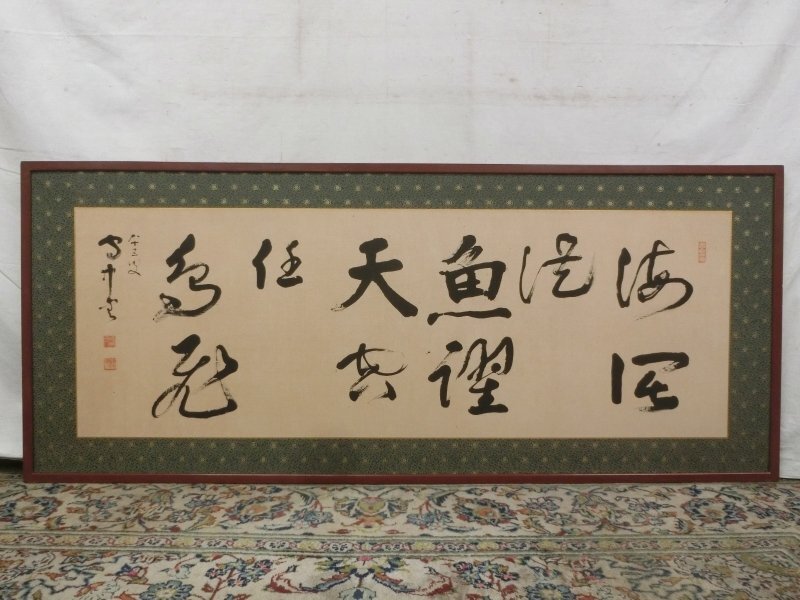 海闊
従
魚躍
天空
任
鳥飛